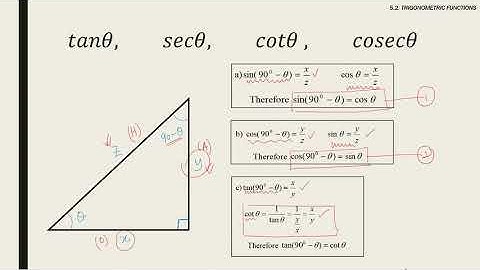 5.2: TRIGONOMETRIC FUNCTIONS
tanθ, secθ, cotθ , cosecθ
a) sin(90⁰ − θ) = x/z ✓ cos θ = x/z
Therefore sin(90⁰ − θ) = cos θ
1
b) cos(90⁰ − θ) = y/z ✓ sin θ = y/z ✓
Therefore cos(90⁰ − θ) = sin θ
2
c) tan(90⁰ − θ) = x/y ✓
cot θ = 1/tan θ = 1/(y/x) = x/y ✓
Therefore tan(90⁰ − θ) = cot θ
(H)
z
90-θ
(A)
y
θ
(O)
x